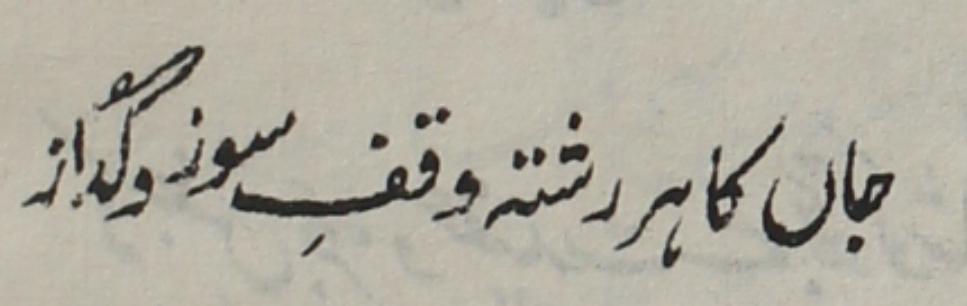 جاں کا ہر رشتہ وقفِ سوز و گداز